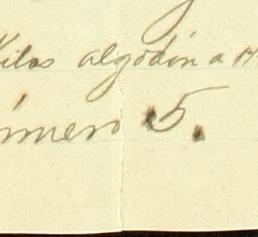 Kilos algodón a
número 5.